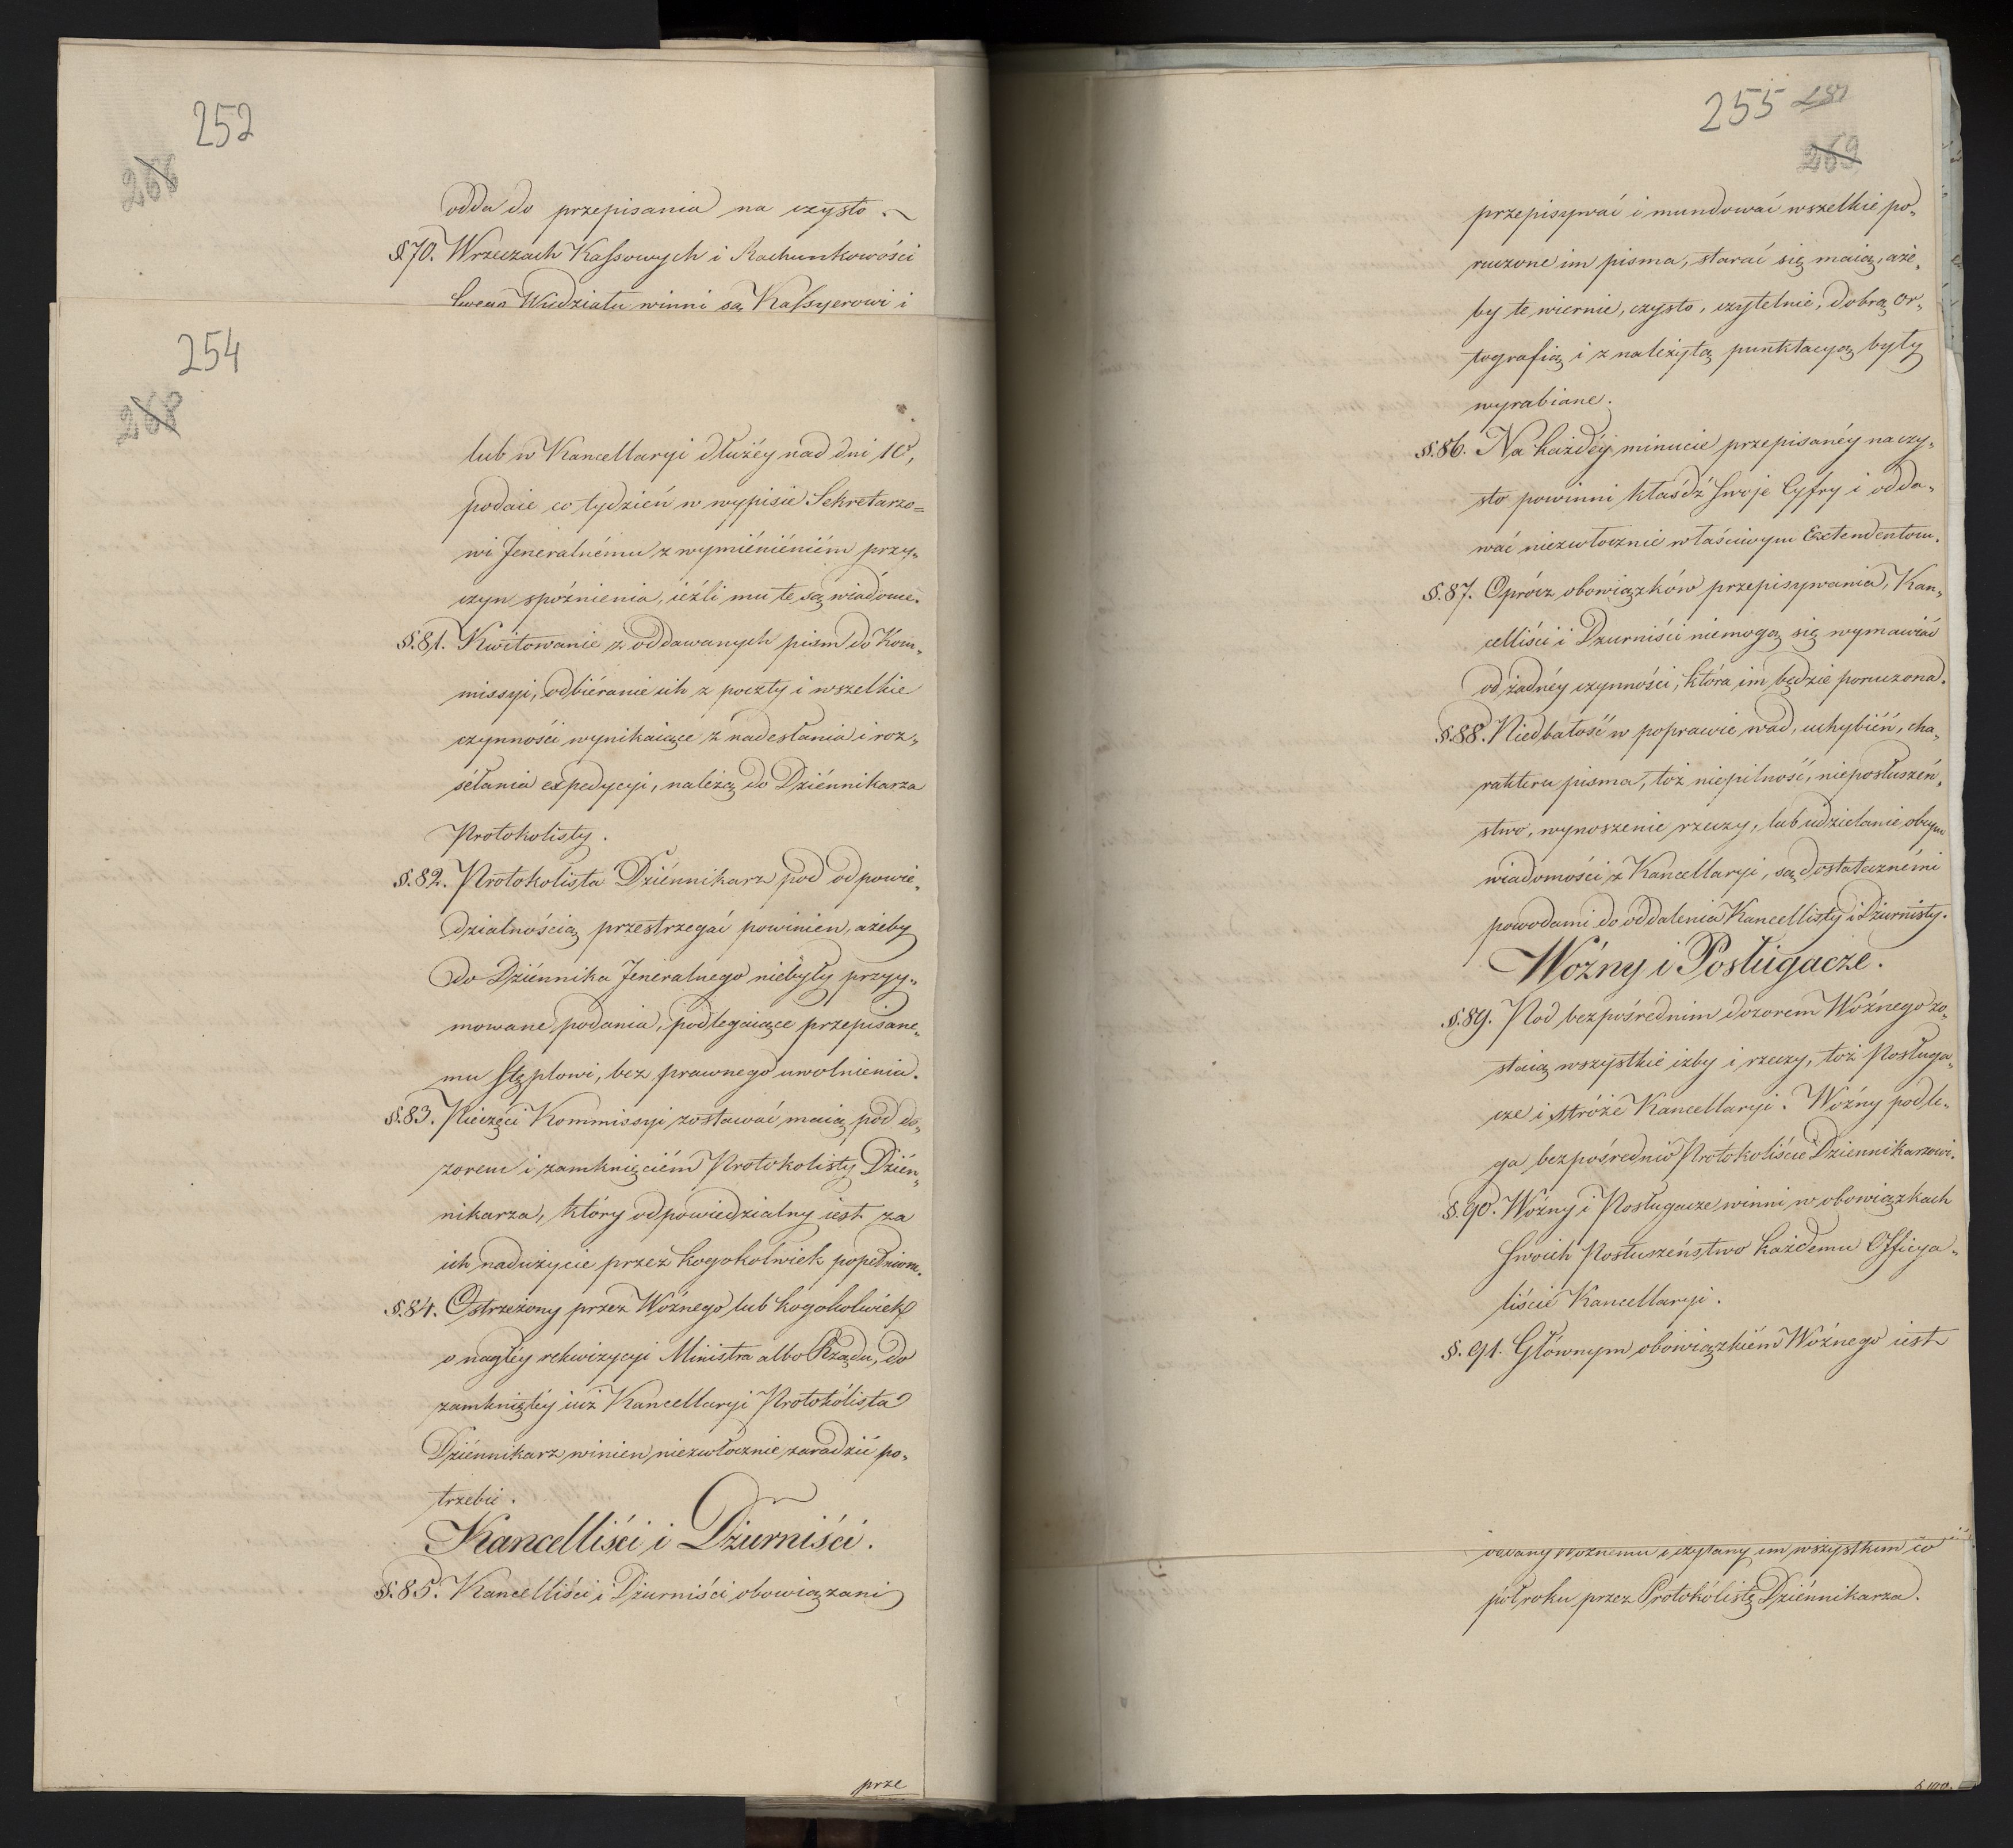 252
266
odda do przepisania na czysto.
§70. W rzeczach Kassowych i Rachunkowości
swego Wydziału winni są Kassyerowi i
254
268
lub w Kancellaryi dłużéy nad dni 10,
podaie co tydzień w wypisie Sekretarzo=
wi Jeneralnému z wymiénieniém przy„
czyn spóźnienia, ieźli mu te są wiadome.
§.81. Kwitowanie z oddawanych pism do Kom„
missyi, odbiéranie ich z poczty i wszelkie
czynności wynikaiące z nadesłania i roz„
séłania expedycyi, należą do Dziénnikarza
Protokolisty.
§.82. Protokolista Dziénnikarz pod odpowie„
dzialnością przestrzegać powinien, ażeby
do Dziénnika Jeneralnego niebyły przyy„
mowane podania, podlegaiące przepisane„
mu stęplowi, bez prawnego uwolnienia.
§.83. Pieczęci Kommissyi zostawać maią pod do„
zorem i zamknięciém Protokolisty Dzién„
nikarza, który odpowiedzialny iest za
ich nadużycie przez kogokolwiek popełnione.
§.84. Ostrzeżony przez Woźnego lub kogokolwiek
o nagłéy rekwizycyi Ministra albo Rządu, do
zamkniętéy iuż Kancellaryi Protokólista
Dziénnikarz winien niezwłocznie zaradzić po„
trzebie.
Kancelliści i Dziurniści.
§.85. Kancelliści i Dziurniści obowiązani
prze
255
269
przepisywać i mundować wszelkie po„
ruczone im pisma, starać się maią, aże„
by te wiernie, czysto, czytelnie, dobrą or„
tografią i z należytą punktacyą były
wyrabiane.
§.86. Na każdéy minucie przepisanéy na czy„
sto powinni kłaśdź swoje Cyfry i odda„
wać niezwłocznie właściwym Extendentom.
§.87. Oprócz obowiązków przepisywania, Kan„
celliści i Dziurniści niemogą się wymawiać
od żadnéy czynności, która im będzie poruczona.
§.88. Niedbałość w poprawie wad, uchybień, cha„
rakteru pisma, toż niepilność, nieposłuszeń„
stwo, wynoszenie rzeczy, lub udzielanie obcym
wiadomości z Kancellaryi, są dostatecznémi
powodami do oddalenia Kancellisty i Dziurnisty.
Woźny i Posługacze.
§.89. Pod bezpośrednim dozorem Woźnego zo„
staią wszystkie izby i rzeczy, toż Posługa„
cze i stróże Kancellaryi. Woźny podle„
ga bezpośrednio Protokoliście Dziennikarzowi.
§.90. Woźny i Posługacze winni w obowiązkach
swoich Posłuszeństwo każdemu Officya„
liście Kancellaryi.
§.91. Głównym obowiązkiém Woźnego iest
dodany Woźnemu i czytany im wszystkim co
pół roku przez Protokólistę Dziénnikarza.